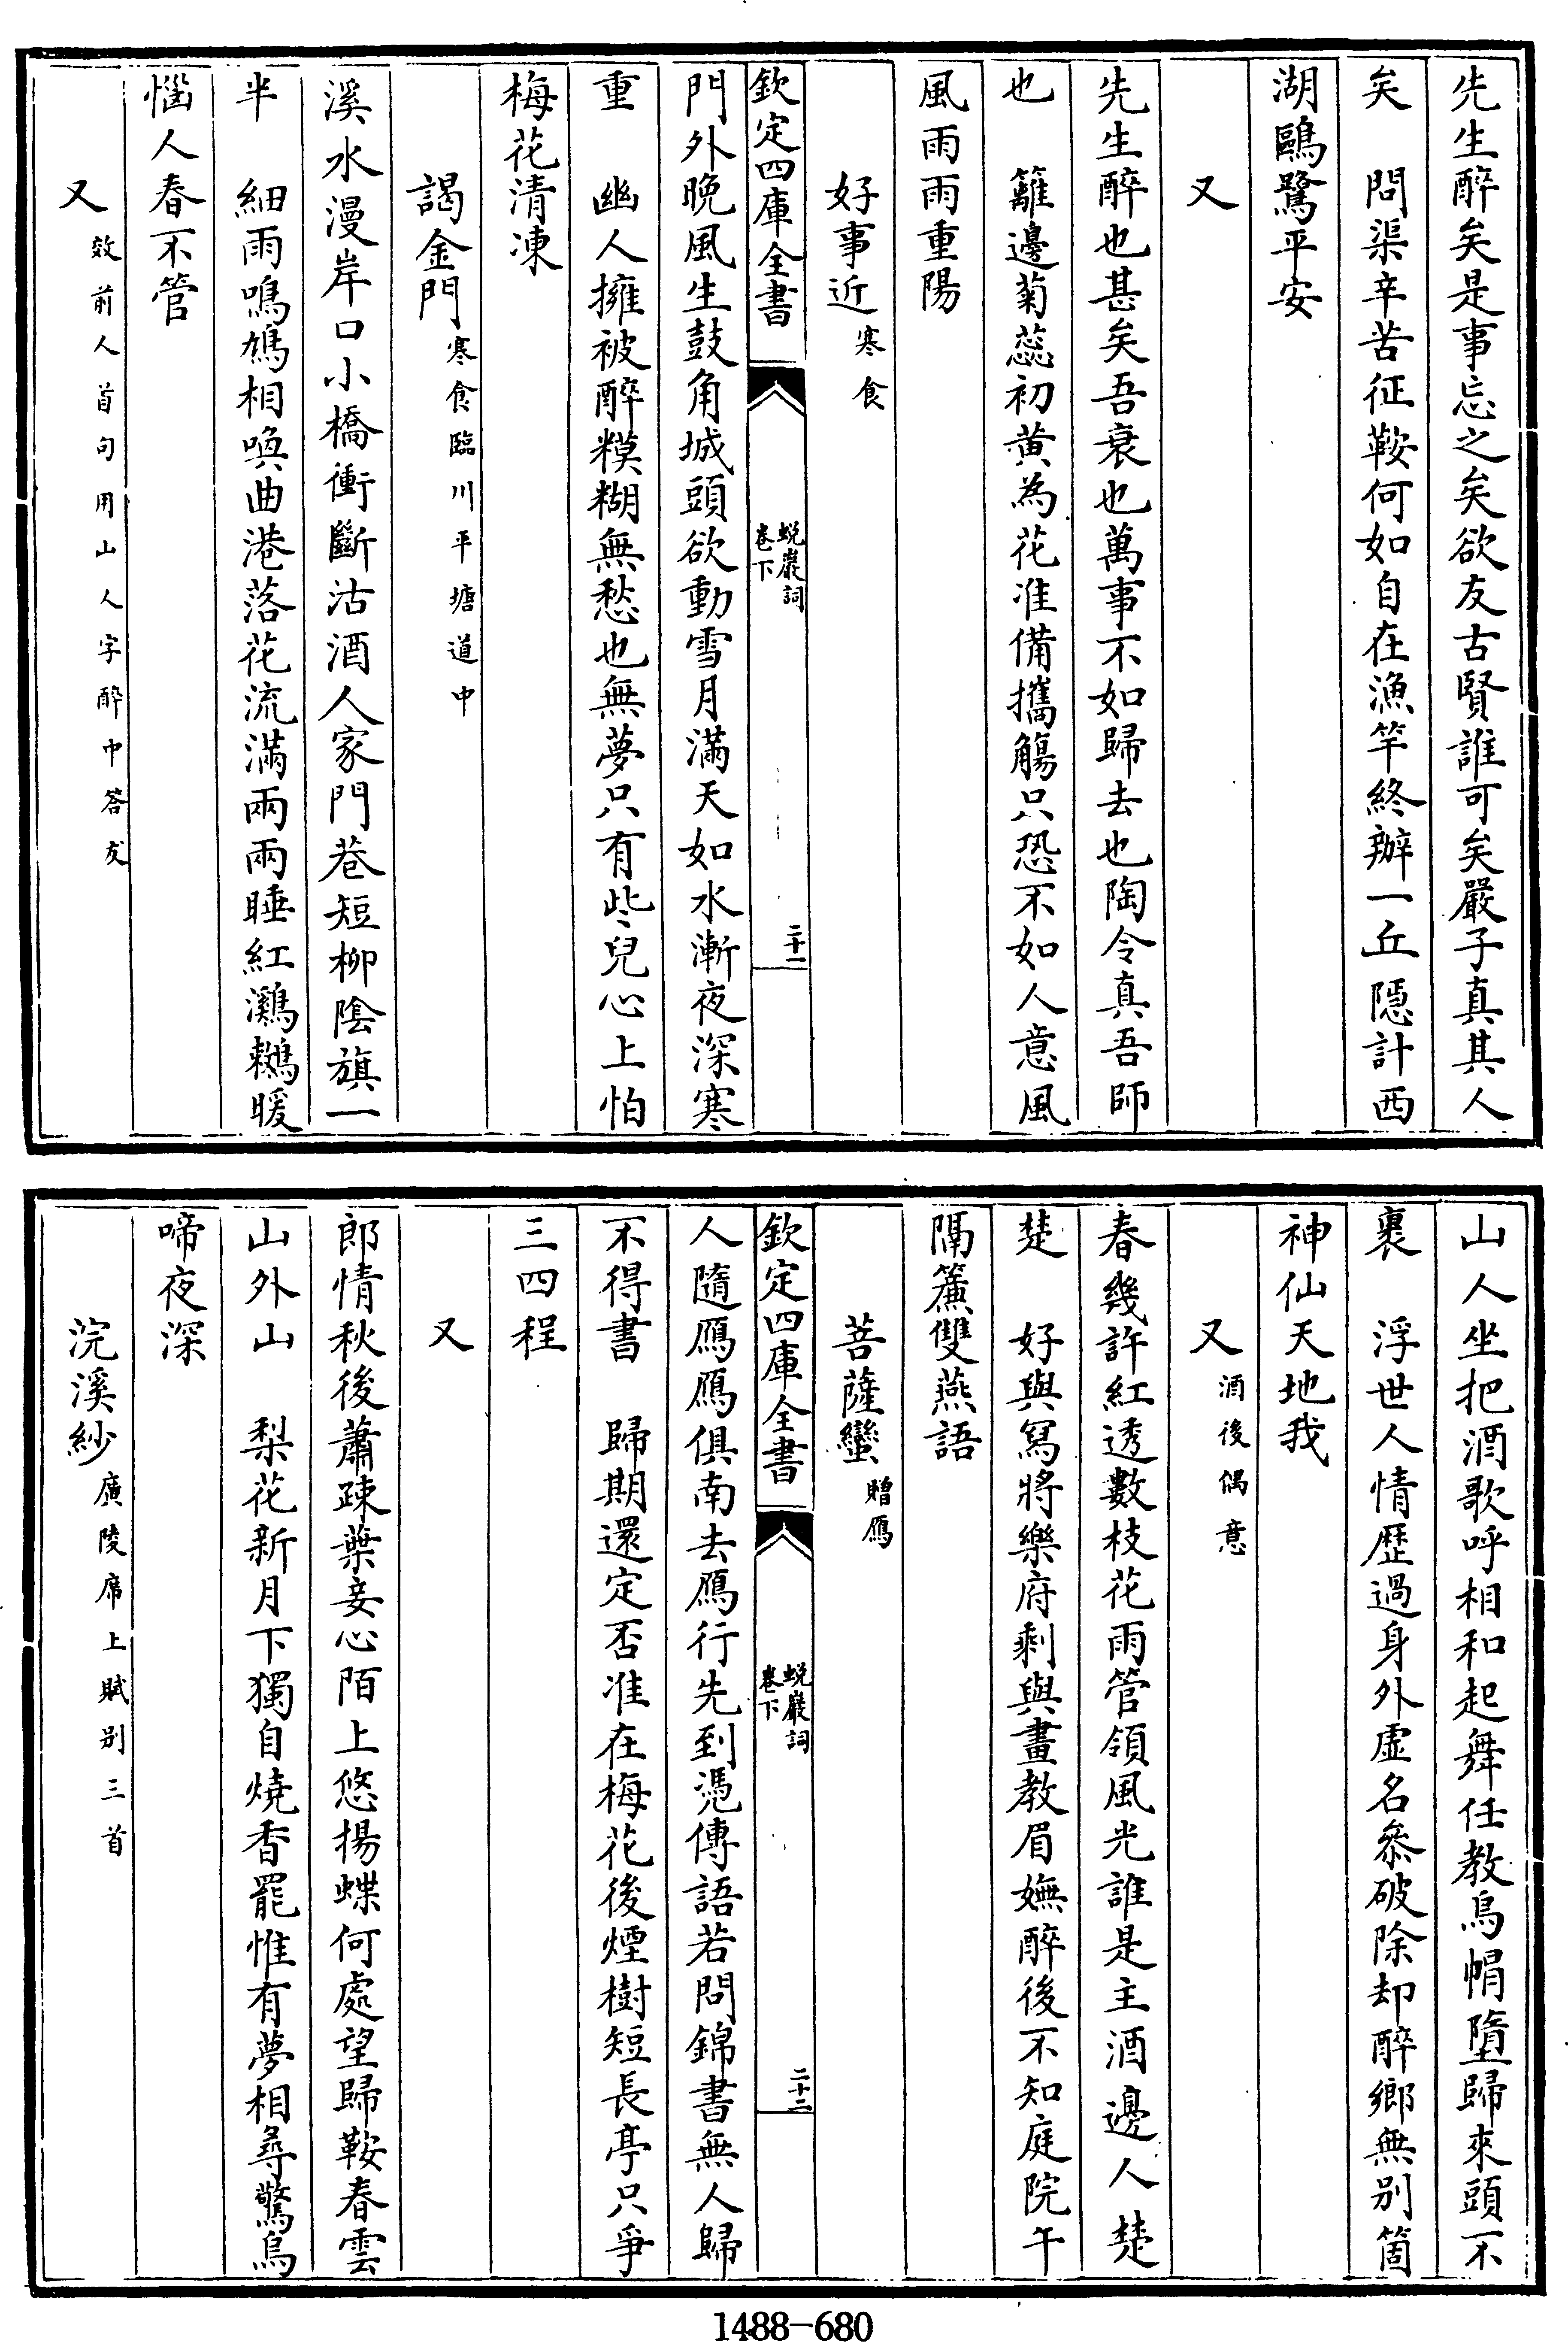 先生醉矣是事忘之矣欲友古賢誰可矣嚴子真其人
矣　問渠辛苦征鞍何如自在漁竿終辦一丘隱計西
湖鷗鷺平安
又
先生醉也甚矣吾衰也萬事不如歸去也陶令真吾師
也　籬邊菊蕊初黄為花准備攜觴只恐不如人意風
風雨雨重陽
好事近寒食
欽定四庫全書
蜕巖詞
卷下
二十一
門外晚風生鼓角城頭欲動雪月滿天如水漸夜深寒
重　幽人擁被醉糢糊無愁也無夢只有些兒心上怕
梅花清凍
謁金門寒食臨川平塘道中
溪水漫岸口小橋衝斷沽酒人家門巷短柳陰旗一
半　細雨鳴鳩相喚曲港落花流滿兩兩睡紅鸂鶒暖
惱人春不管
又效前人首句用山人字醉中答友
山人坐把酒歌呼相和起舞任教烏帽墮歸來頭不
裹　浮世人情歴過身外虛名叅破除却醉鄉無别箇
神仙天地我
又酒後偶意
春幾許紅透數枝花雨管領風光誰是主酒邊人楚
楚　好與冩將樂府剩與畫教眉嫵醉後不知庭院午
隔簾雙燕語
菩薩蠻贈鴈
欽定四庫全書
蜕巖詞
卷下
二十二
人隨鴈鴈俱南去鴈行先到憑傳語若問錦書無人歸
不得書　歸期還定否准在梅花後煙樹短長亭只爭
三四程
又
郎情秋後蕭疎葉妾心陌上悠揚蝶何處望歸鞍春雲
山外山　梨花新月下獨自燒香罷惟有夢相尋驚烏
啼夜深
浣溪紗廣陵席上賦别三首
1488－680